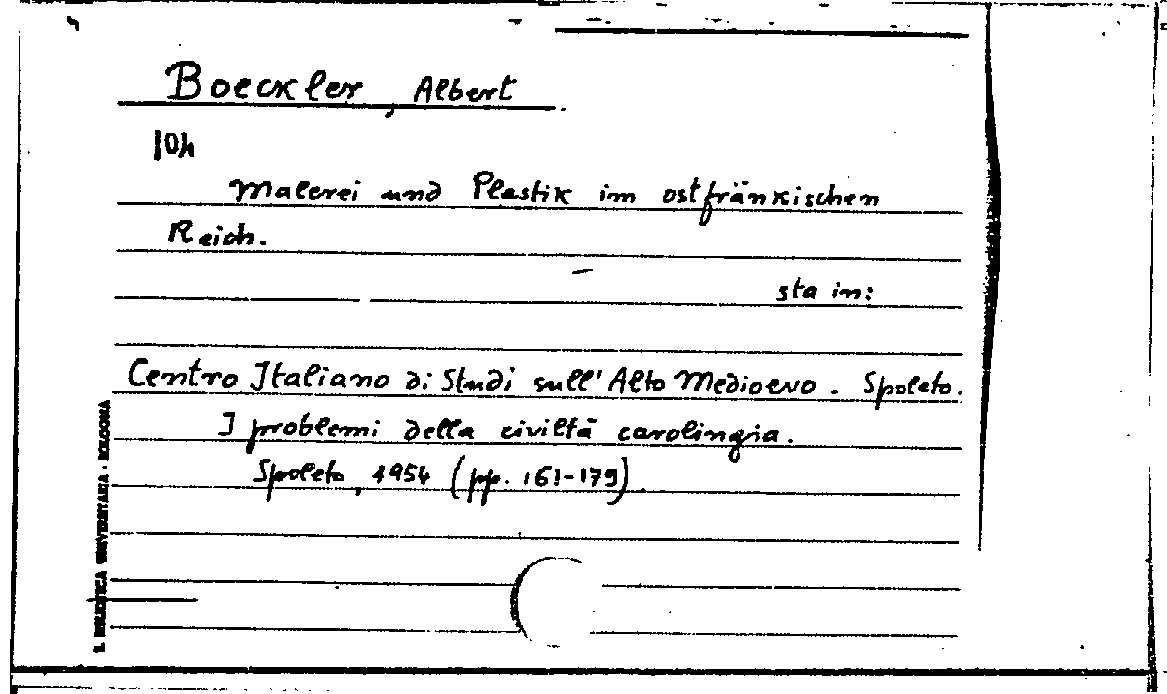 Boeckler, Albert.
10h
Malerei und Plastik im ostfränkischen
Reich.
sta in:
Centro Italiano di Studi sull'Alto Medioevo. Spoleto.
I problemi della civiltà carolingia.
Spoleto, 1954 (pp. 161-179).
BIBLIOTECA UNIVERSITARIA - BOLOGNA